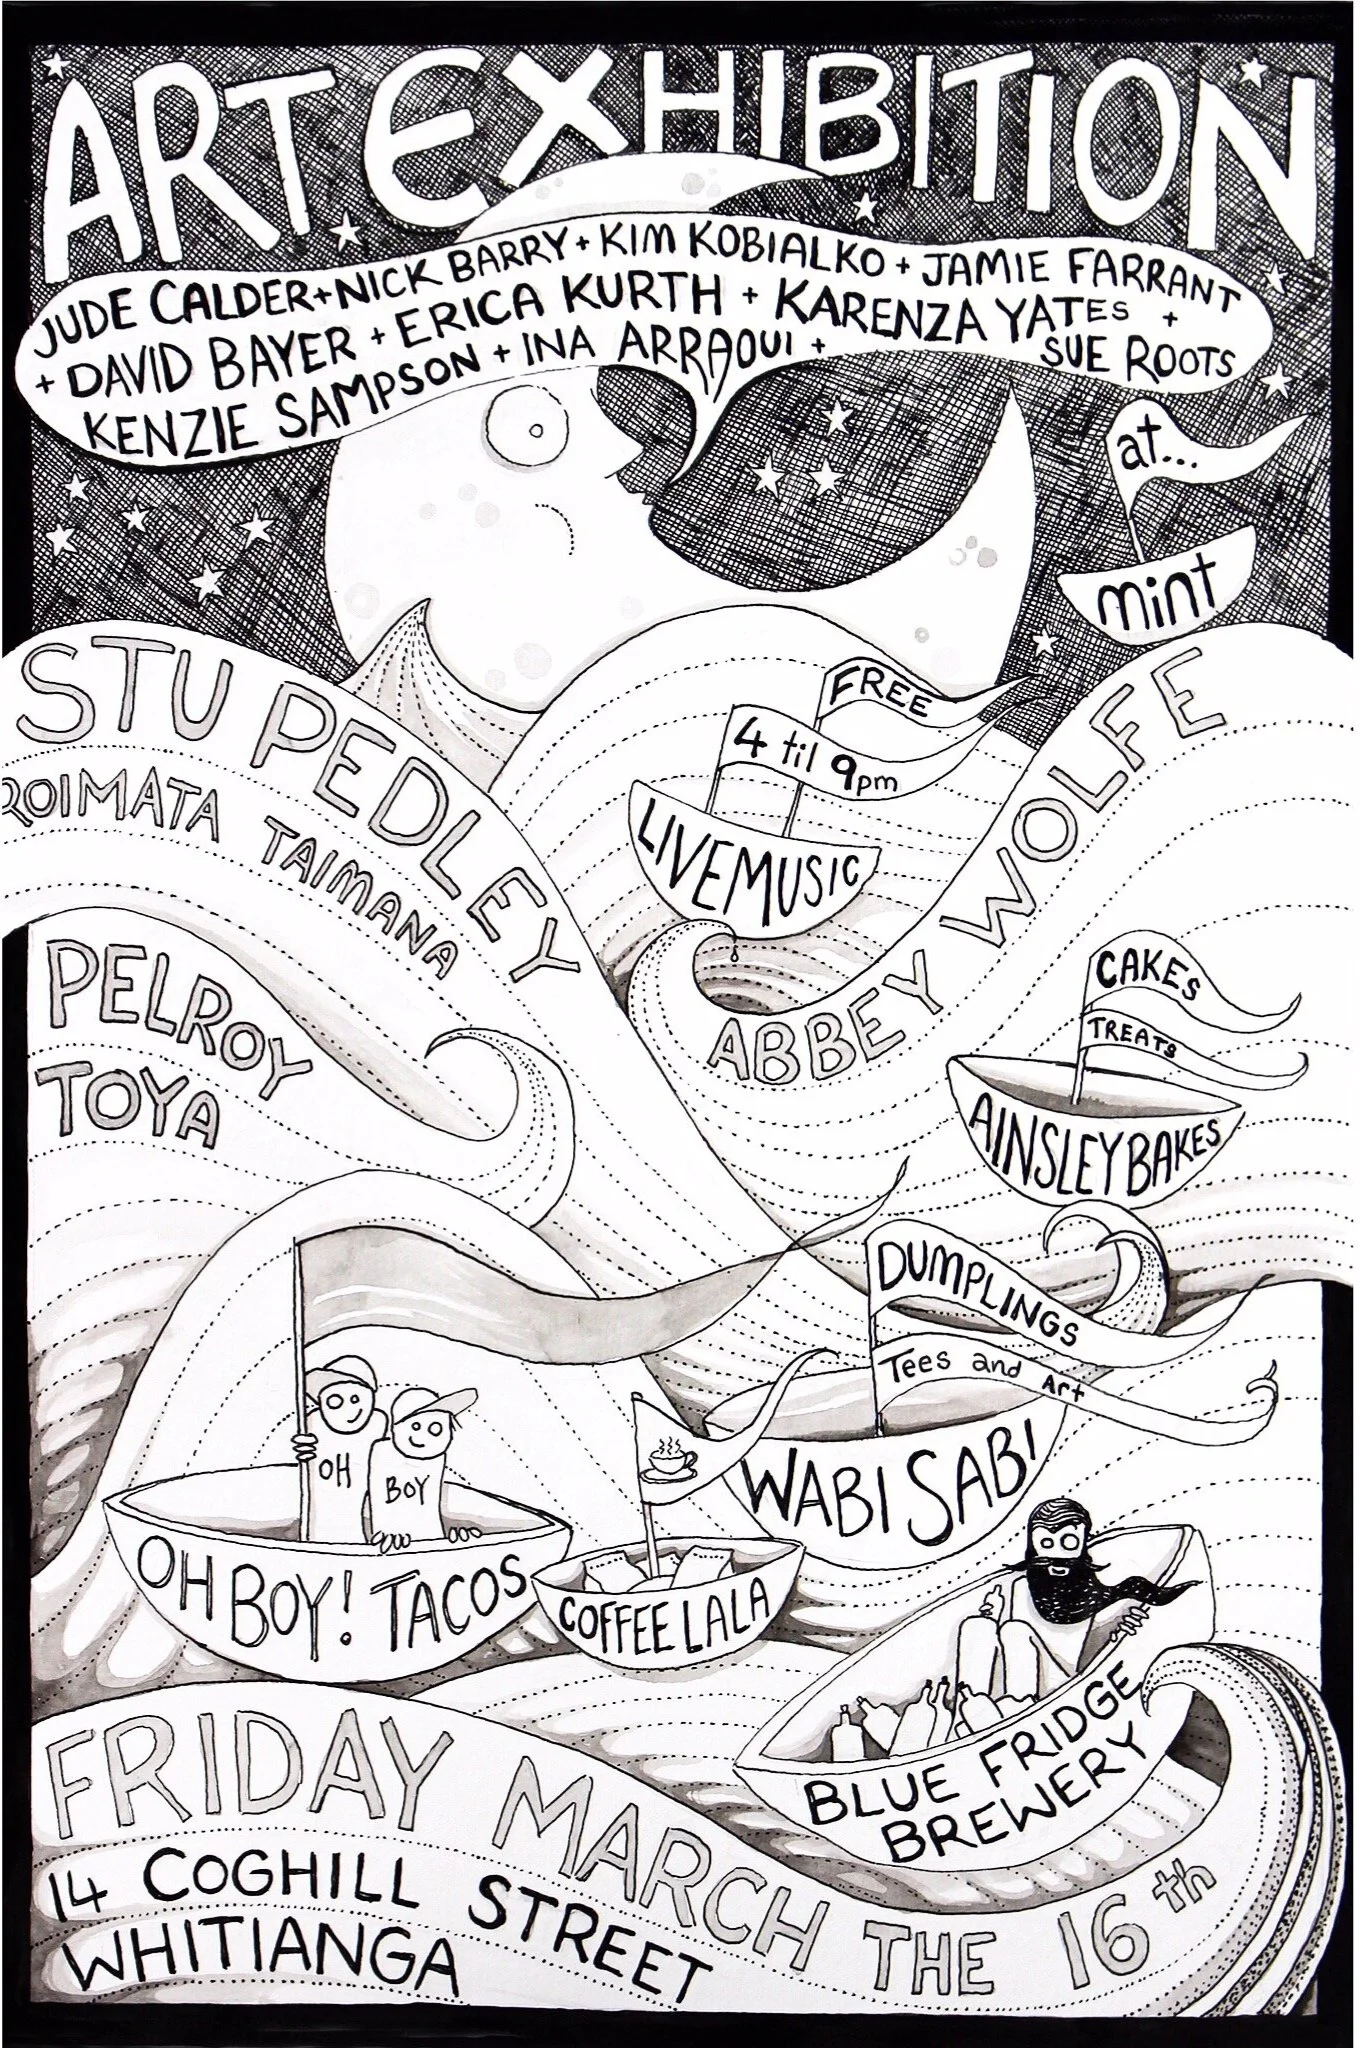 ART EXHIBITION
JUDE CALDER + NICK BARRY + KIM KOBIALKO + JAMIE FARRANT
+ DAVID BAYER + ERICA KURTH + KARENZA YATES +
KENZIE SAMPSON + INA ARRAOUI + SUE ROOTS
at...
mint
STU PEDLEY
ROIMATA TAIMANA
PELROY
TOYA
FREE
4 til 9pm
LIVE MUSIC
ABBEY WOLFE
CAKES
TREATS
AINSLEY BAKES
DUMPLINGS
Tees and Art
WABI SABI
OH
BOY
OH BOY! TACOS
COFFEE LALA
BLUE FRIDGE
BREWERY
FRIDAY MARCH THE 16th
14 COGHILL STREET
WHITIANGA